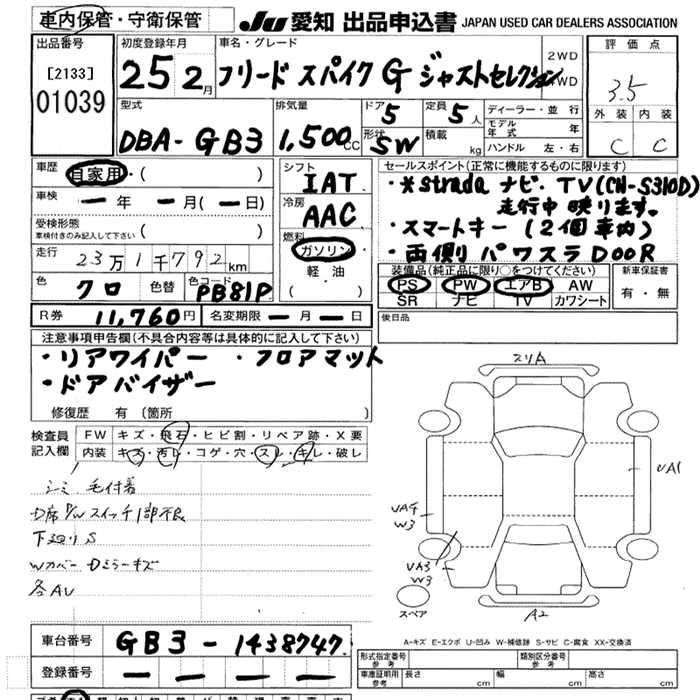 車内保管・守衛保管 JU 愛知 出品申込書 JAPAN USED CAR DEALERS ASSOCIATION
出品番号 初度登録年月 車名・グレード 2WD 評価点
[2133] 01039 25 2月 フリード スパイク G ジャストセレクション 4WD 3.5
型式 排気量 ドア 5 定員 5人 ディーラー・並行 外装 内装
DBA-GB3 1,500cc 形状 SW 積載 kg モデル年式 年 C C
ハンドル 左・右
車歴 自家用・( ) シフト IAT セールスポイント(正常に機能するものに限ります)
車検 ー年ー月(ー日) 冷房 AAC ・*strada ナビ・TV(CN-S310D)
走行中映ります。
受検形態 車検付きのみ記入して下さい ( ) 燃料 ガソリン・ ・スマートキー(2個車内)
走行 23万1千792km 軽油 ・両側パワスラDOOR
色 クロ 色替 色コード PB81P ( ) 装備品(純正品に限り○をつけてください) 新車保証書
PS PW エアB AW 有・無
SR ナビ TV カワシート
R券 11,760円 名変期限ー月ー日 後日品
注意事項申告欄(不具合内容等は具体的に記入して下さい)
・リアワイパー ・フロアマット
・ドアバイザー
修復歴 有(箇所 )
検査員記入欄 FW キズ・飛石・ヒビ割・リペア跡・X要
内装 キズ・汚レ・コゲ・穴・スレ・キレ・破レ
シミ 毛付着
D席P/Wスイッチ1部不良
下廻りS
Wカバー Dミラーキズ
各AU
スリA
UA1
UA4
W3
UA3
W3
スペア
A2
A-キズ E-エクボ U-凹み W-補修跡 S-サビ C-腐食 XX-交換済
車台番号 GB3-1438747.
登録番号 ー ー ー ー
形式指定番号 参考 類別区分番号 参考
車庫証明用 参考 長さ cm 幅 cm 高さ cm